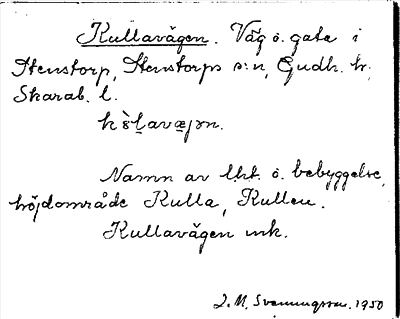 Kullavägen. Väg o. gata i
Stenstorp, Stenstorps s:n, Gudh. hd,
Skarab. l.
Namn av lht. o. bebyggelse,
höjdområde Kulla, Kullen.
Kullavägen mk.
J. M. Svenningsson. 1950